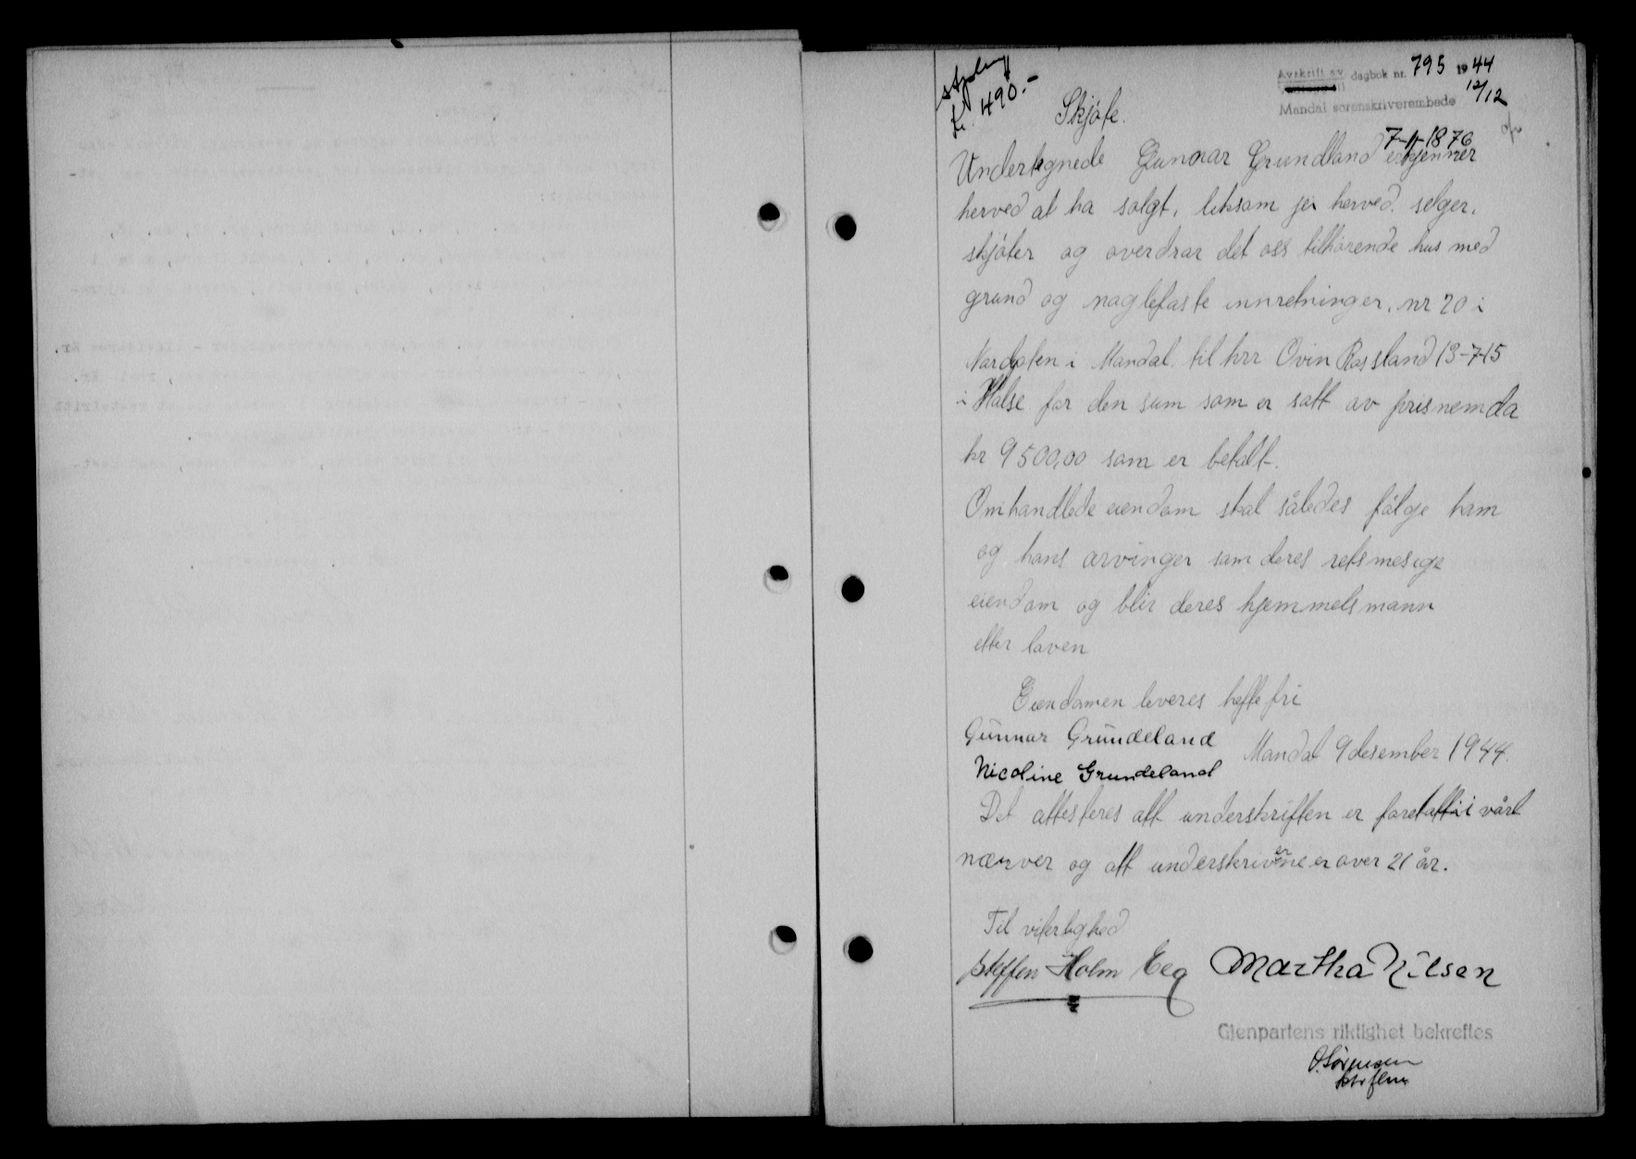 Stplmg
kr. 490.-
Avskrift av dagbok nr. 795 1944
Mandal sorenskriverembede 12/12
Skjøte.
7-11-1876
Undertegnede Gunnar Grundland erkjenner
herved at ha solgt, liksom jei herved. selger,
skjøter og overdrar det oss tilhørende hus med
grund og naglefaste innretninger. nr 20 i
Nordgaten i Mandal. til hrr Ovin Rossland 13-7-15
i Halse for den sum som er satt av prisnemda
kr 9500,00 som er betalt.
Omhandlede eiendom skal således følge ham
og hans arvinger som deres retsmesige
eiendom og blir deres hjemmelsmann
etter loven
Eiendomen leveres heftefri
Gunnar Grundeland
Mandal 9 desember 1944.
Nicoline Grundeland
Det attesteres att underskriften er foretatt i vårt
nærver og att underskriverne er over 21 år.
Til viterlighed
Steffen Holm Eeg Martha Nilsen
Gjenpartens riktighet bekreftes
O. Sørensen